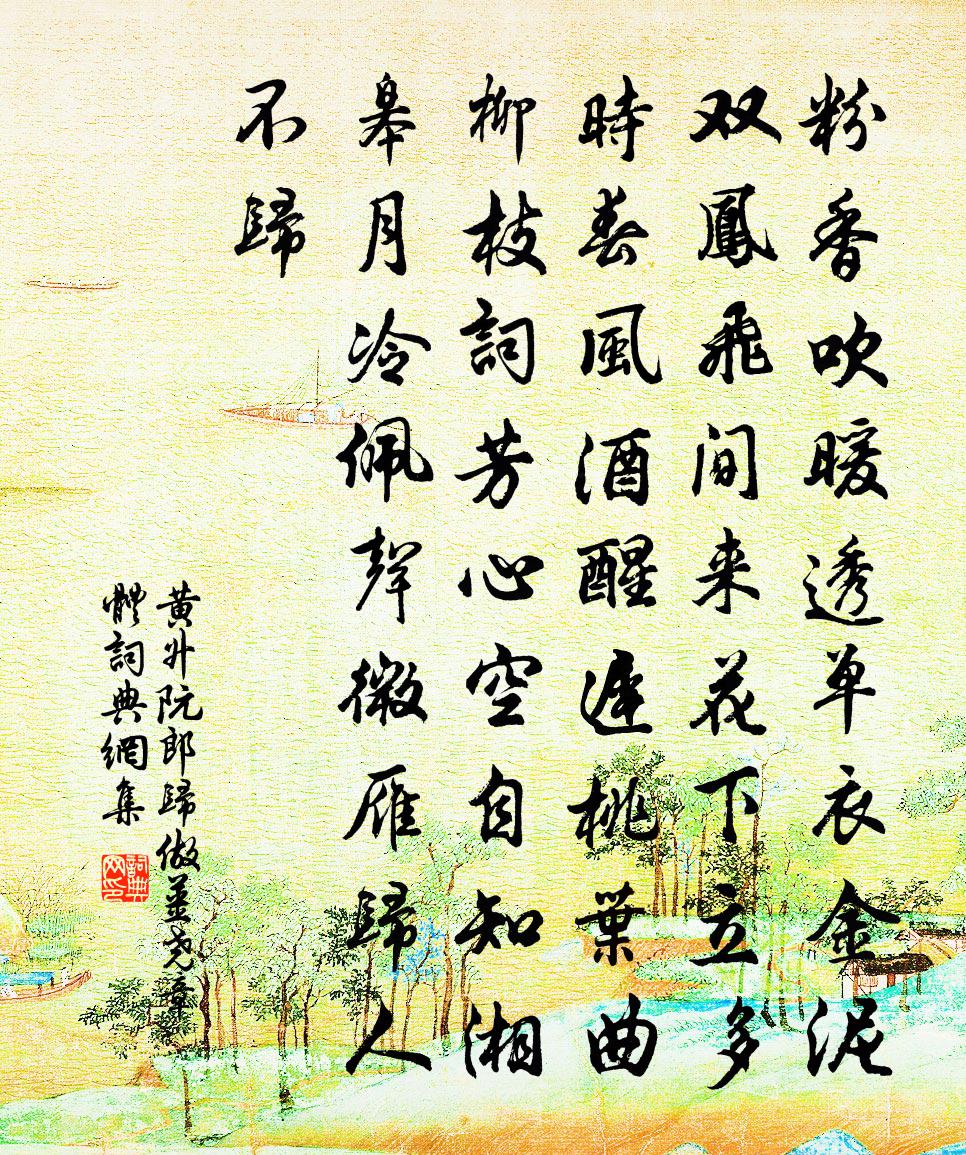 粉香吹暖透单衣金泥
双鳳飛间来花下立多
時春風酒醒遲桃葉曲
柳枝詞芳心空自知湘
皋月冷佩聲微雁歸人
不歸
黄升阮郎歸做姜堯章
體詞典網集
詞典
网印